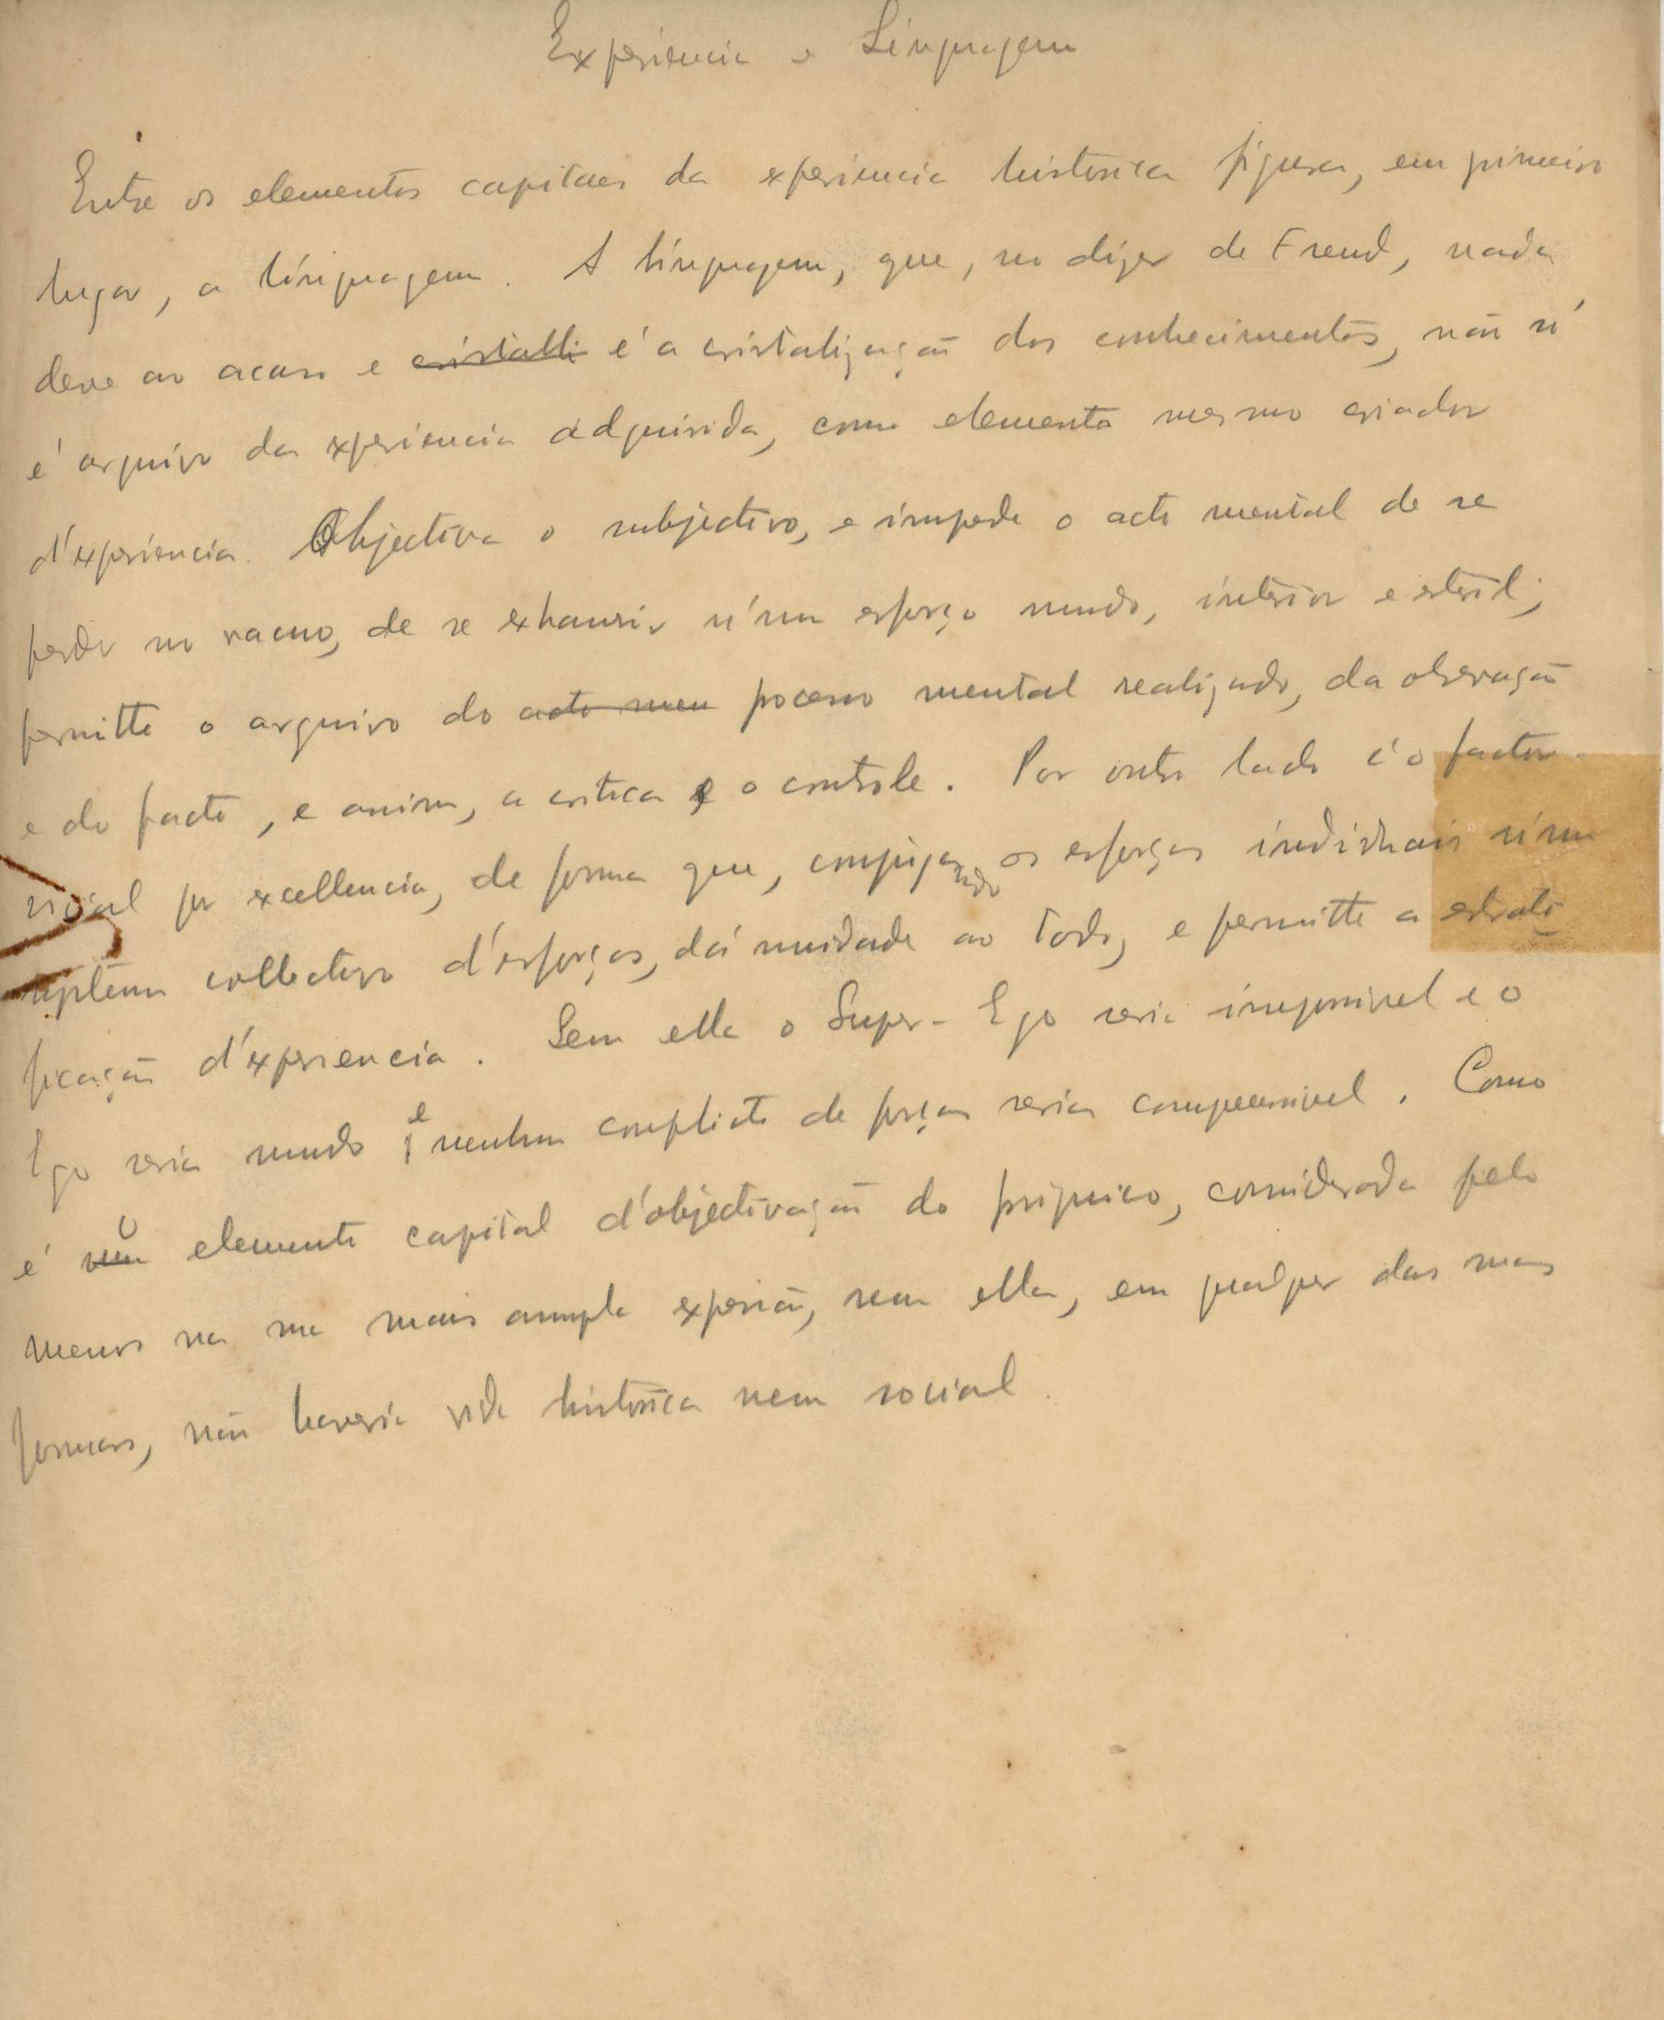 Experiencia e Linguagem
Entre os elementos capitaes da experiencia historica figura, em primeiro
lugar, a linguagem. A linguagem, que, no dizer de Freud, nada
deve ao acaso e cristalli é a cristalização dos conhecimentos, não só
é arquivo da experiencia adquirida, como elemento mesmo criador
d'experiencia. Objectiva o subjectivo, e impede o acto mental de se
perder no vacuo, de se exhaurir n'um esforço mudo, interior e esteril;
permitte o arquivo do acto men processo mental realizado, da observação
e do facto, e assim, a critica e o controle. Por outro lado é o factor
social por excellencia, de forma que, conjugando os esforços individuais n'um
systema collectivo d'esforços, dá unidade ao todo, e permitte a estrati
ficação d'experiencia. Sem ella o Super-Ego seria impossivel e o
Ego seria mudo e nenhum conflicto de forças seria compreensivel. Como
é um o elemento capital d'objectivação do psiquico, considerada pelo
menos na sua mais ampla expressão, sem ella, em qualquer das suas
formas, não haveria vida historica nem social.